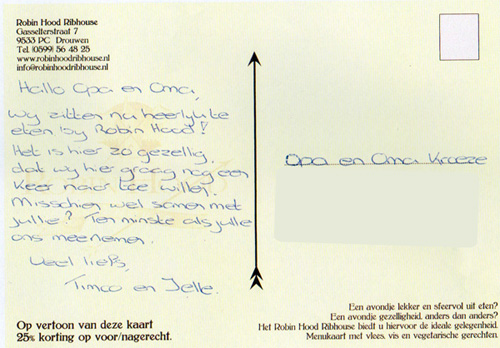 Robin Hood Ribhouse
Gasselterstraat 7
9533 PC Drouwen
Tel. (0599) 56 48 25
www.robinhoodribhouse.nl
info@robinhoodribhouse.nl
Hallo Opa en Oma,
Wy zitten nu heerlyk te
eten by Robin Hood!
Het is hier zo gezellig,
dat wy hier graag nog een
Keer naar toe willen.
Misschien wel samen met
jullie? Ten minste als jullie
ons meenemen.
Veel liefs,
Timco en Jelle.
Opa en Oma Kroeze
Op vertoon van deze kaart
25% korting op voor/nagerecht.
Een avondje lekker en sfeervol uit eten?
Een avondje gezelligheid, anders dan anders?
Het Robin Hood Ribhouse biedt u hiervoor de ideale gelegenheid.
Menukaart met vlees, vis en vegetarische gerechten.